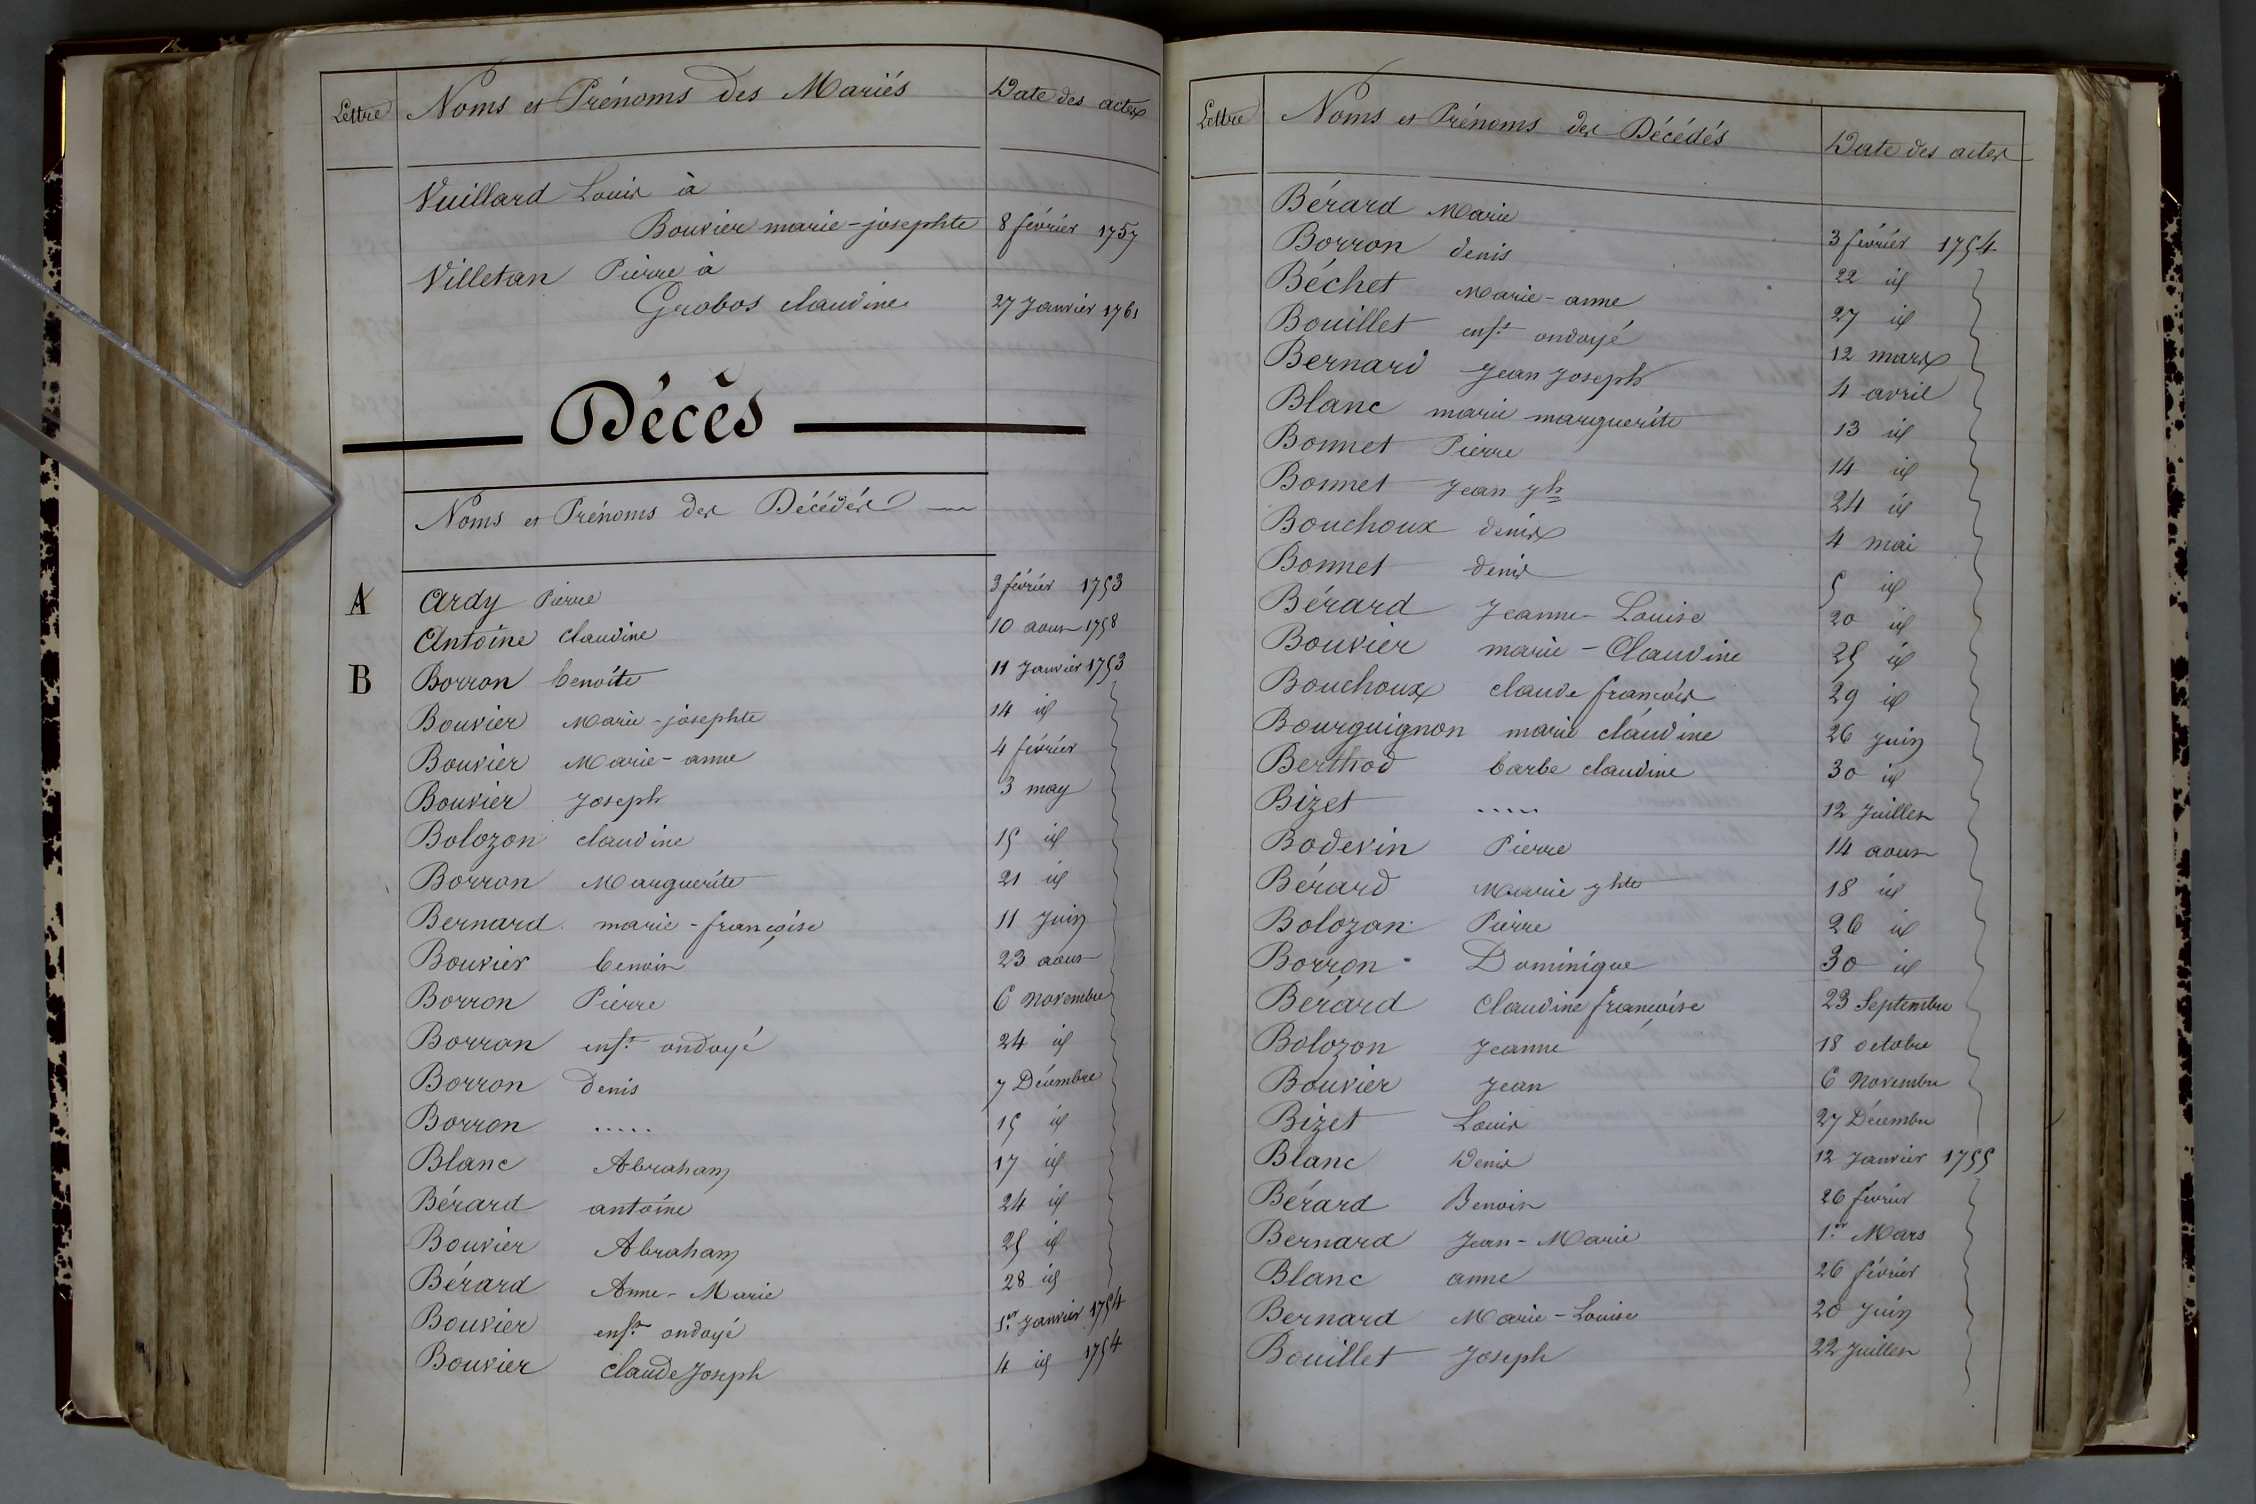 Lettre Noms et Prénoms des Mariés Date des actes
Vuillard Louis à
Bouvier marie-josephte 8 février 1757
Villetan Pierre à
Grobos claudine 27 Janvier 1761
Décès
Noms et Prénoms des Décédés
A Ardy Pierre 3 février 1753
Antoine claudine 10 aout 1758
B Borron benoite 11 Janvier 1753
Bouvier Marie-josephte 14 id
Bouvier Marie-anne 4 février
Bouvier Joseph 3 may
Bolozon claudine 15 id
Borron Marguerite 21 id
Bernard marie-françoise 11 Juin
Bouvier benoit 23 aout
Borron Pierre 6 Novembre
Borron enft ondoyé 24 id
Borron denis 7 Décembre
Borron ..... 15 id
Blanc Abraham 17 id
Bérard antoine 24 id
Bouvier Abraham 25 id
Bérard Anne-Marie 28 id
Bouvier enft ondoyé 1er Janvier 1754
Bouvier claude Joseph 4 id 1754
Lettre Noms et Prénoms des Décédés Date des actes
Bérard Marie 3 février 1754
Borron denis 22 id
Béchet Marie-anne 27 id
Bouillet enft ondoyé 12 mars
Bernard Jean Joseph 4 avril
Blanc marie marguerite 13 id
Bonnet Pierre 14 id
Bonnet Jean jh 24 id
Bouchoux denis 4 mai
Bonnet denis 5 id
Bérard Jeanne-Louise 20 id
Bouvier marie-Claudine 25 id
Bouchoux claude françois 29 id
Bourguignon marie claudine 26 Juin
Berthod barbe claudine 30 id
Bizet ..... 12 Juillet
Bodevin Pierre 14 aout
Bérard Marie jhte 18 id
Bolozon Pierre 26 id
Borron Dominique 30 id
Berard Claudine françoise 23 Septembre
Bolozon Jeanne 18 octobre
Bouvier Jean 6 Novembre
Bizet Louis 27 Décembre
Blanc Denis 12 Janvier 1755
Bérard Benoit 26 février
Bernard Jean-Marie 1er Mars
Blanc anne 26 février
Bernard Marie-Louise 20 Juin
Bouillet Joseph 22 Juillet